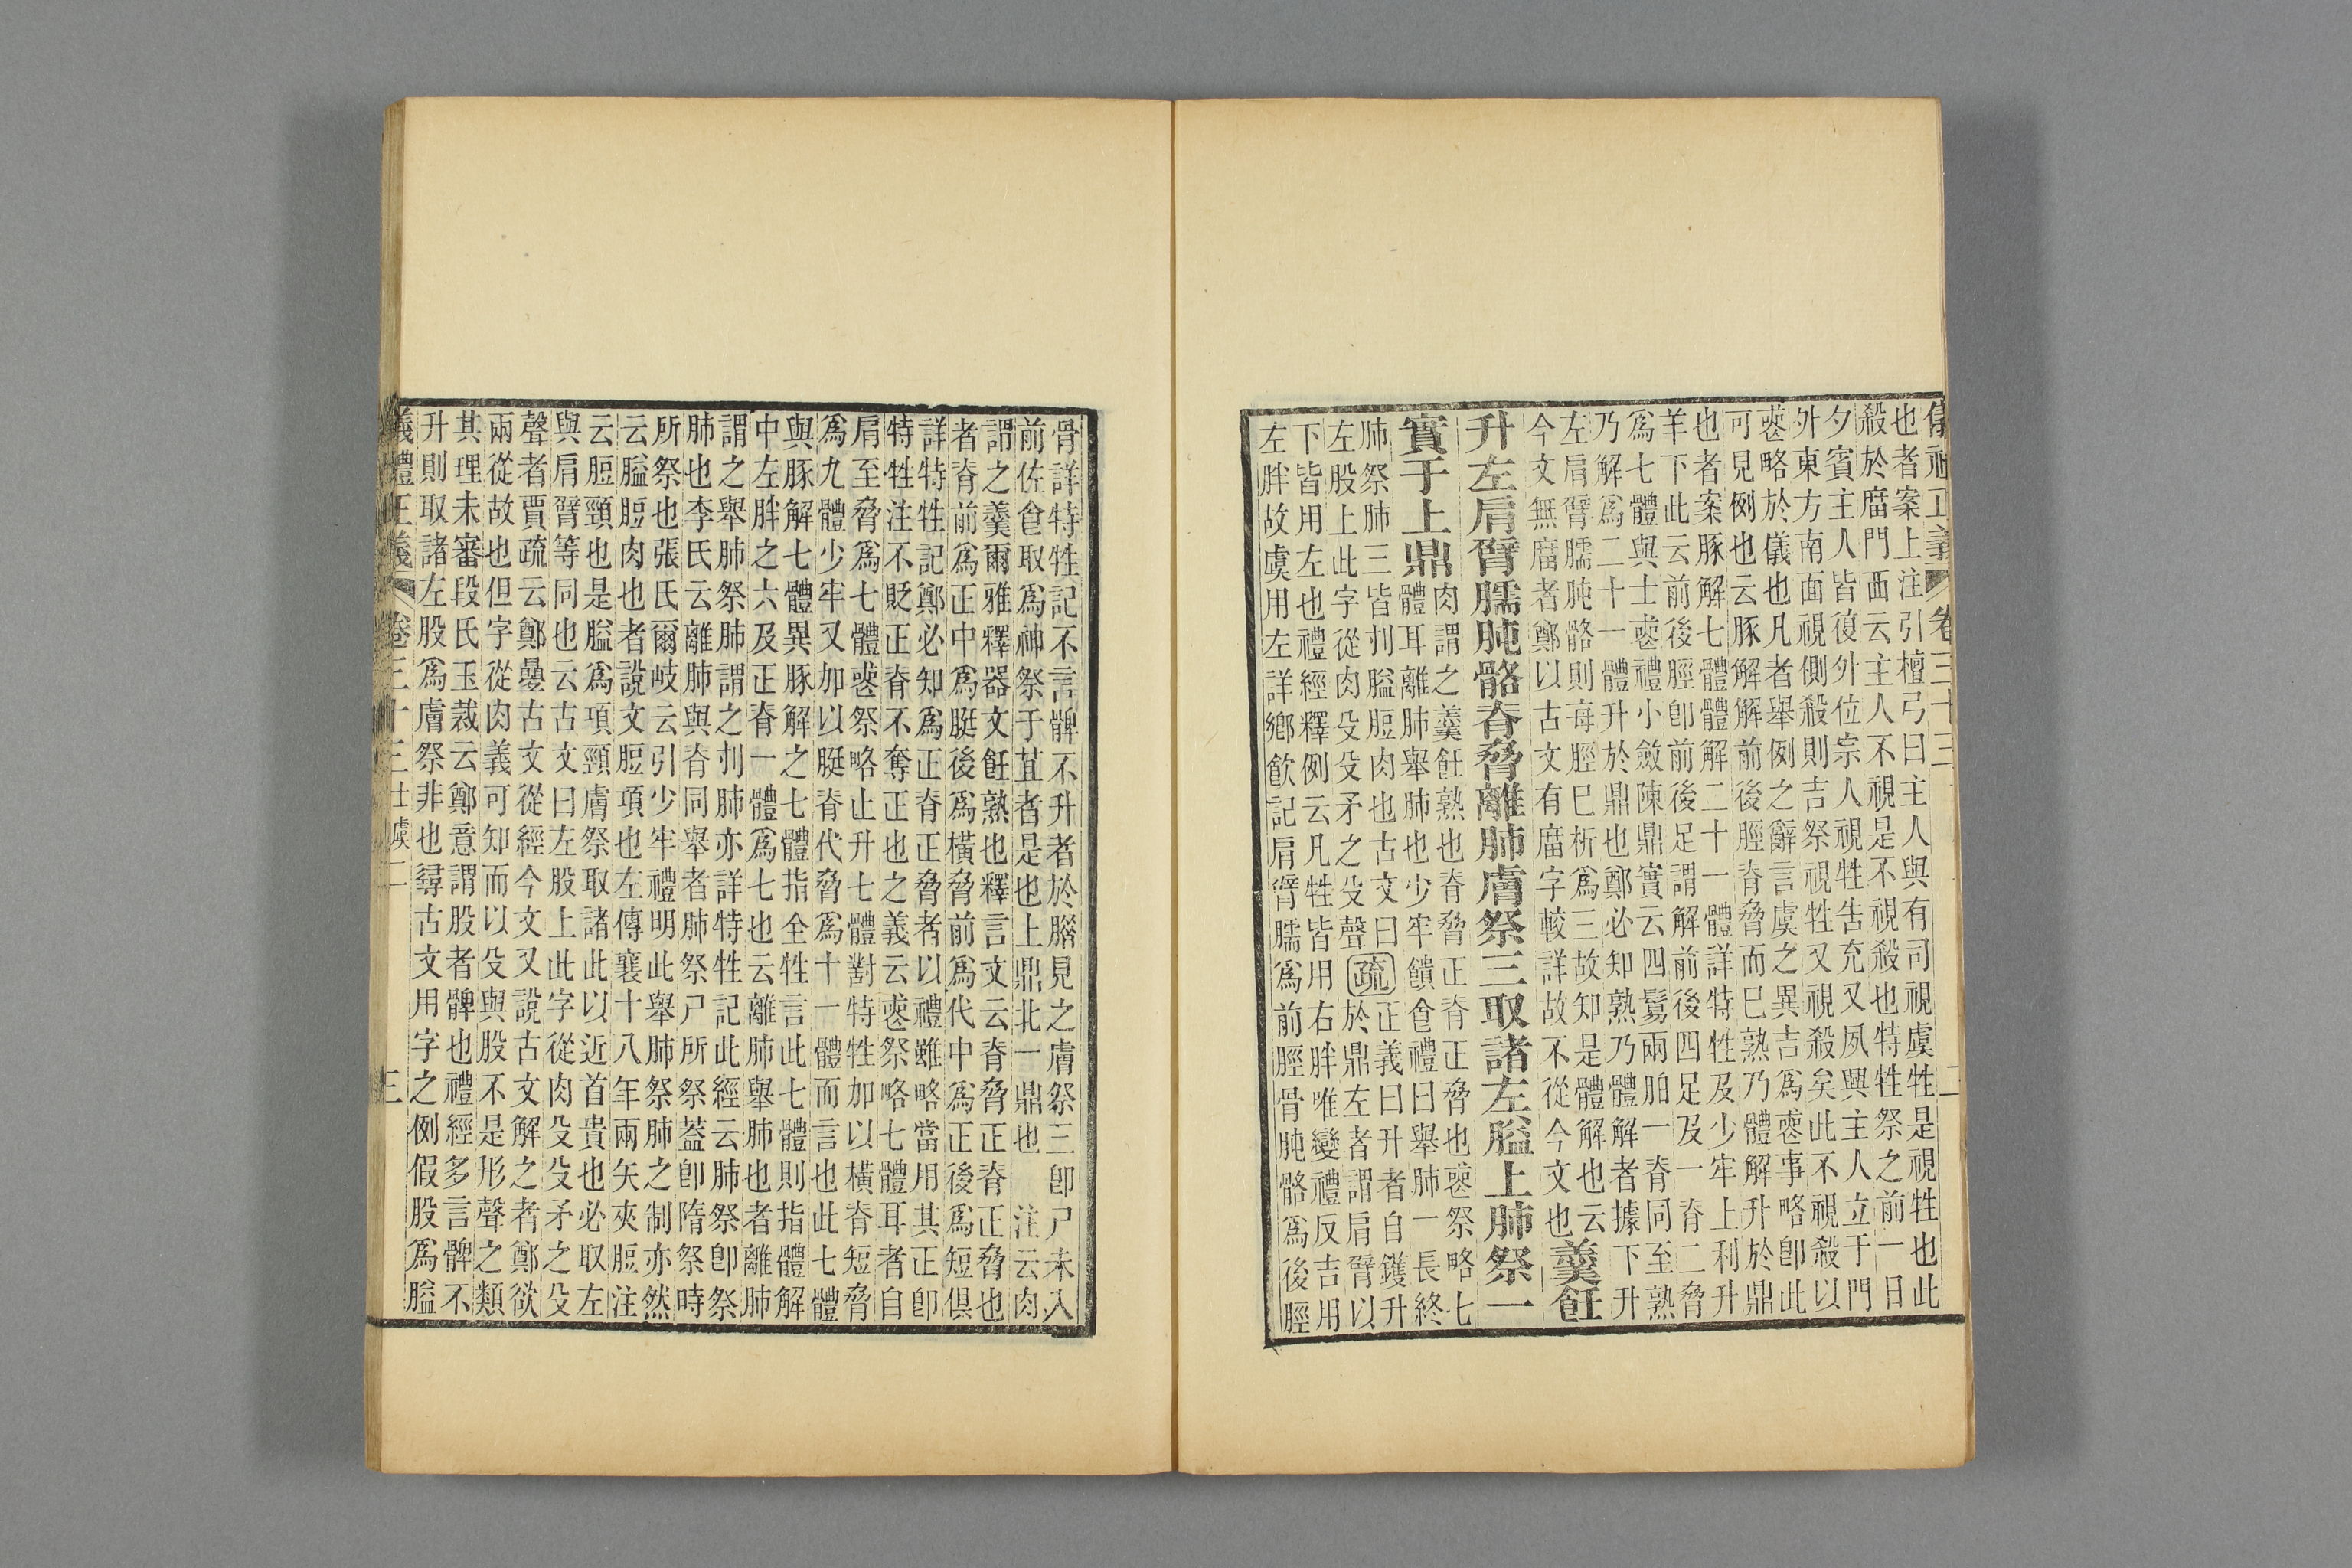 儀禮正義 卷三十三 二
也者案上注引檀弓曰主人與有司視虞牲是視牲也此
殺於廟門西云主人不視是不視殺也特牲祭之前一日
夕賓主人皆復外位宗人視牲告充又夙興主人立于門
外東方南面視側殺則吉祭視牲又視殺矣此不視殺以
喪略於儀也凡者舉例之辭言虞之異吉爲喪事略卽此
可見例也云豚解解前後脛脊脅而已熟乃體解升於鼎
也者案豚解七體體解二十一體詳特牲及少牢上利升
羊下此云前後脛卽前後足謂解前後四足及一脊二脅
爲七體與士喪禮小斂陳鼎實云四鬄兩胉一脊同至熟
乃解爲二十一體升於鼎也鄭必知熟乃體解者據下升
左肩臂臑肫骼則每脛已析爲三故知是體解也云
今文無廟者鄭以古文有廟字較詳故不從今文也羹飪
升左肩臂臑肫骼脊脅離肺膚祭三取諸左膉上肺祭一
實于上鼎肉謂之羹飪熟也脊脅正脊正脅也喪祭略七
體耳離肺舉肺也少牢饋食禮曰舉肺一長終
肺祭肺三皆刌膉脰肉也古文曰
左股上此字從肉殳殳矛之殳聲疏正義曰升者自鑊升
於鼎左者謂肩臂以
下皆用左也禮經釋例云凡牲皆用右胖唯變禮反吉用
左胖故虞用左詳鄉飮記肩臂臑爲前脛骨肫骼爲後脛
骨詳特牲記不言髀不升者於腊見之膚祭三卽尸未入
前佐食取爲神祭于苴者是也上鼎北一鼎也 注云肉
謂之羹爾雅釋器文飪熟也釋言文云脊脅正脊正脅也
者脊前爲正中爲脡後爲橫脅前爲代中爲正後爲短俱
詳特牲記鄭必知爲正脊正脅者以禮雖略當用其正卽
特牲注不貶正脊不奪正也之義云喪祭略七體耳者自
肩至脅爲七體喪祭略止升七體對特牲加以橫脊短脅
爲九體少牢又加以脡脊代脅爲十一體而言也此七體
與豚解七體異豚解之七體指全牲言此七體則指體解
中左胖之六及正脊一體爲七也云離肺舉肺也者離肺
謂之舉肺祭肺謂之刌肺亦詳特牲記此經云肺祭卽祭
肺也李氏云離肺與脊同舉者肺祭尸所祭蓋卽隋祭時
所祭也張氏爾岐云引少牢禮明此舉肺祭肺之制亦然
云膉脰肉也者說文脰項也左傳襄十八年兩矢夾脰注
云脰頸也是膉爲項頸膚祭取諸此以近首貴也必取左
與肩臂等同也云古文曰左股上此字從肉殳殳矛之殳
聲者賈疏云鄭疊古文從經今文又說古文解之者鄭欲
兩從故也但字從肉義可知而以殳與股不是形聲之類
其理未審段氏玉裁云鄭意謂股者髀也禮經多言髀不
升則取諸左股爲膚祭非也尋古文用字之例假股爲膉
儀禮正義 卷三十三 士虞一 三